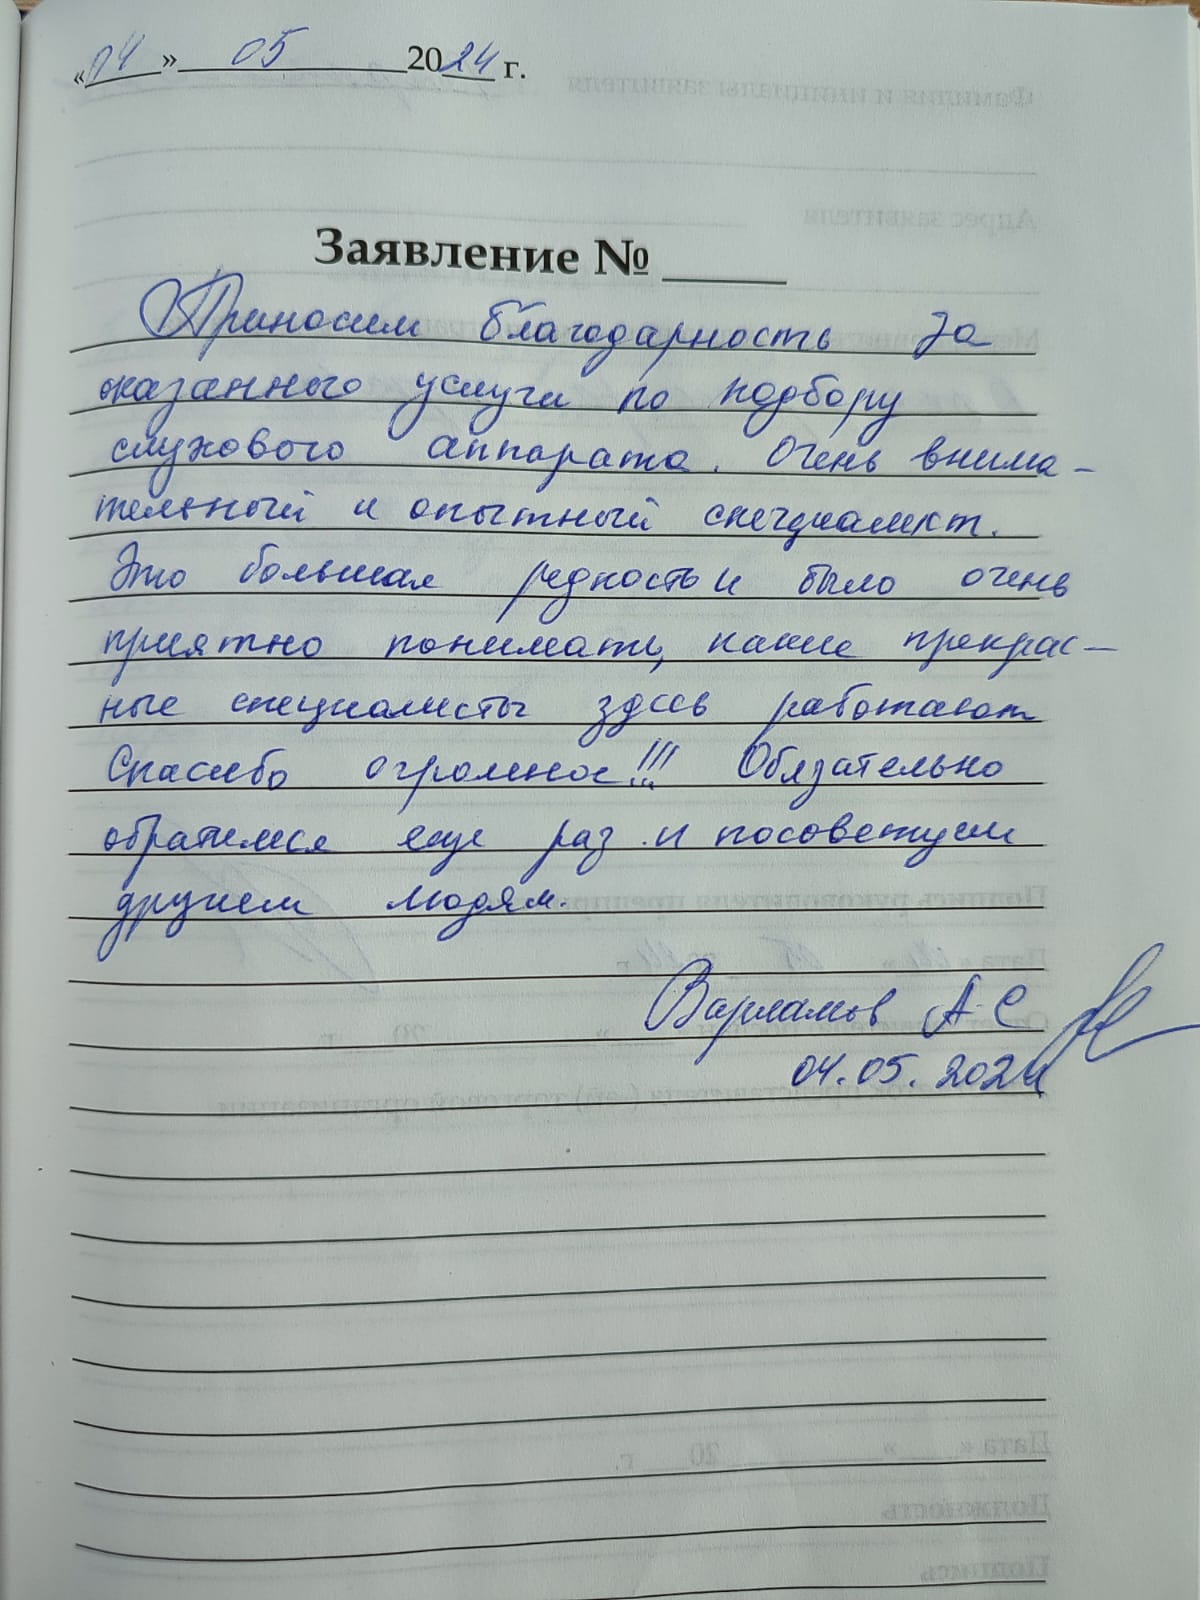 «04» 05 2024 г.
Заявление № ____
Приносим благодарность за
оказанного услуги по подбору
слухового аппарата. Очень внима-
тельный и опытный специалист.
Это большая редкость и было очень
приятно понимать, какие прекрас-
ные специалисты здесь работают
Спасибо огромное!!! Обязательно
обратимся еще раз и посоветуем
другим людям.
Варламов А.С
04.05.2024